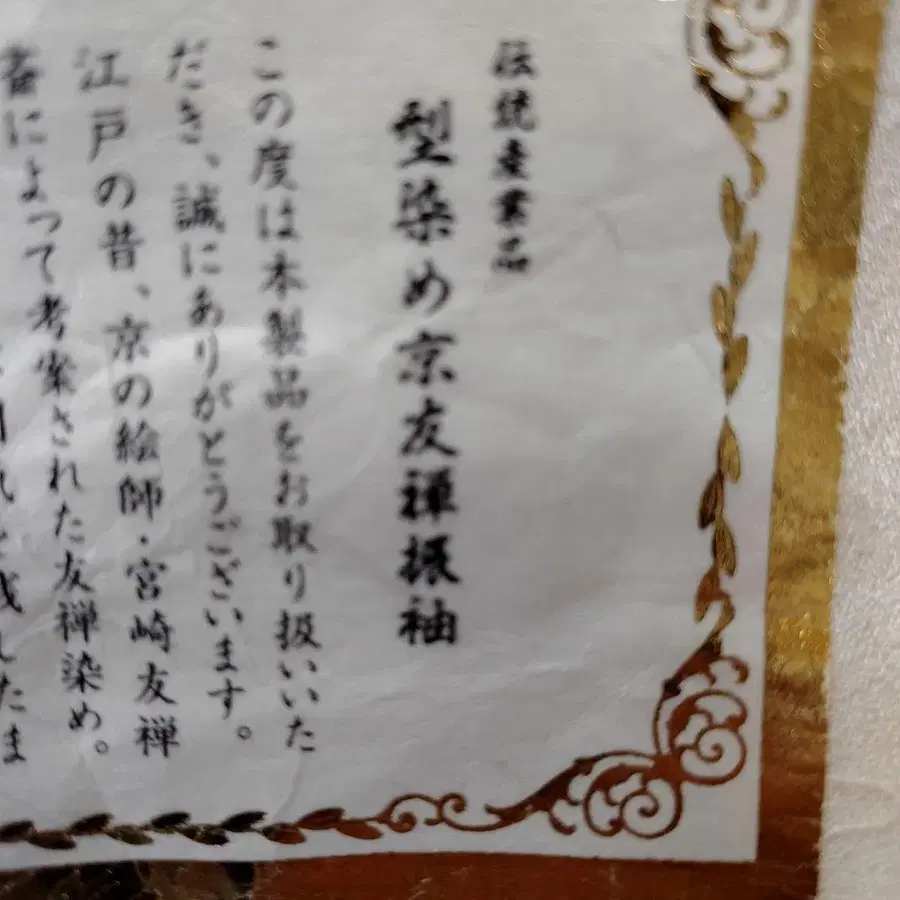 伝統産業品
型染め京友禅振袖
この度は本製品をお取り扱いいた
だき、誠にありがとうございます。
江戸の昔、京の絵師・宮崎友禅
斎によって考案された友禅染め。